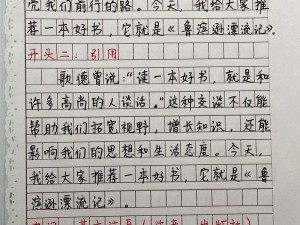 亮我们前行的路。今天，我给大家推
荐一本好书，它就是《鲁滨逊漂流记》。
开头二：引用
歌德曾说：“读一本好书，就是和
许多高尚的人谈话。”这种交谈不仅能
帮助我们拓宽视野，增长知识，还能
影响我们的思想和生活态度。今天，
我给大家推荐一本好书，它就是《鲁
滨逊漂流记》。